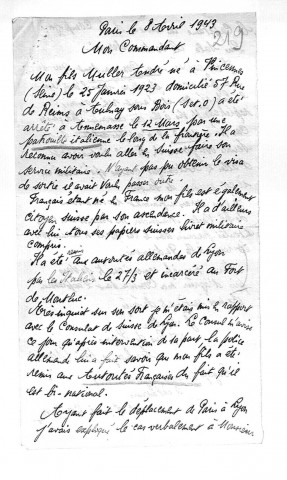 Paris le 8 Avril 1943
219
Mon Commandant
Mon fils Muller André né à Vincennes
(Seine) le 25 Janvier 1923 domicilié 57 Rue
de Reims à Aulnay sous Bois (Set.O) a été
arrêté à Annemasse le 12 Mars par une
patrouille italienne le long de la frontière. Il a
reconnu avoir voulu aller en Suisse faire son
service militaire. N'ayant pas pu obtenir le visa
de sortie il avait voulu passer outre.
Français étant né en France mon fils est également
citoyen suisse par son ascendance. Il a d'ailleurs
avec lui tous ses papiers suisses livret militaire
compris.
Il a été remis aux autorités allemandes de Lyon
par les Italiens le 27/3 et incarcéré au Fort
de Montluc.
Très inquiet sur son sort je m'étais mis en rapport
avec le Consulat de Suisse de Lyon. Le Consul m'avise
ce jour qu'après intervention de sa part la police
allemande lui a fait savoir que mon fils a été
remis aux Autorités Françaises du fait qu'il
est bi-national.
Ayant fait le déplacement de Paris à Lyon
j'avais expliqué le cas verbalement à Monsieur